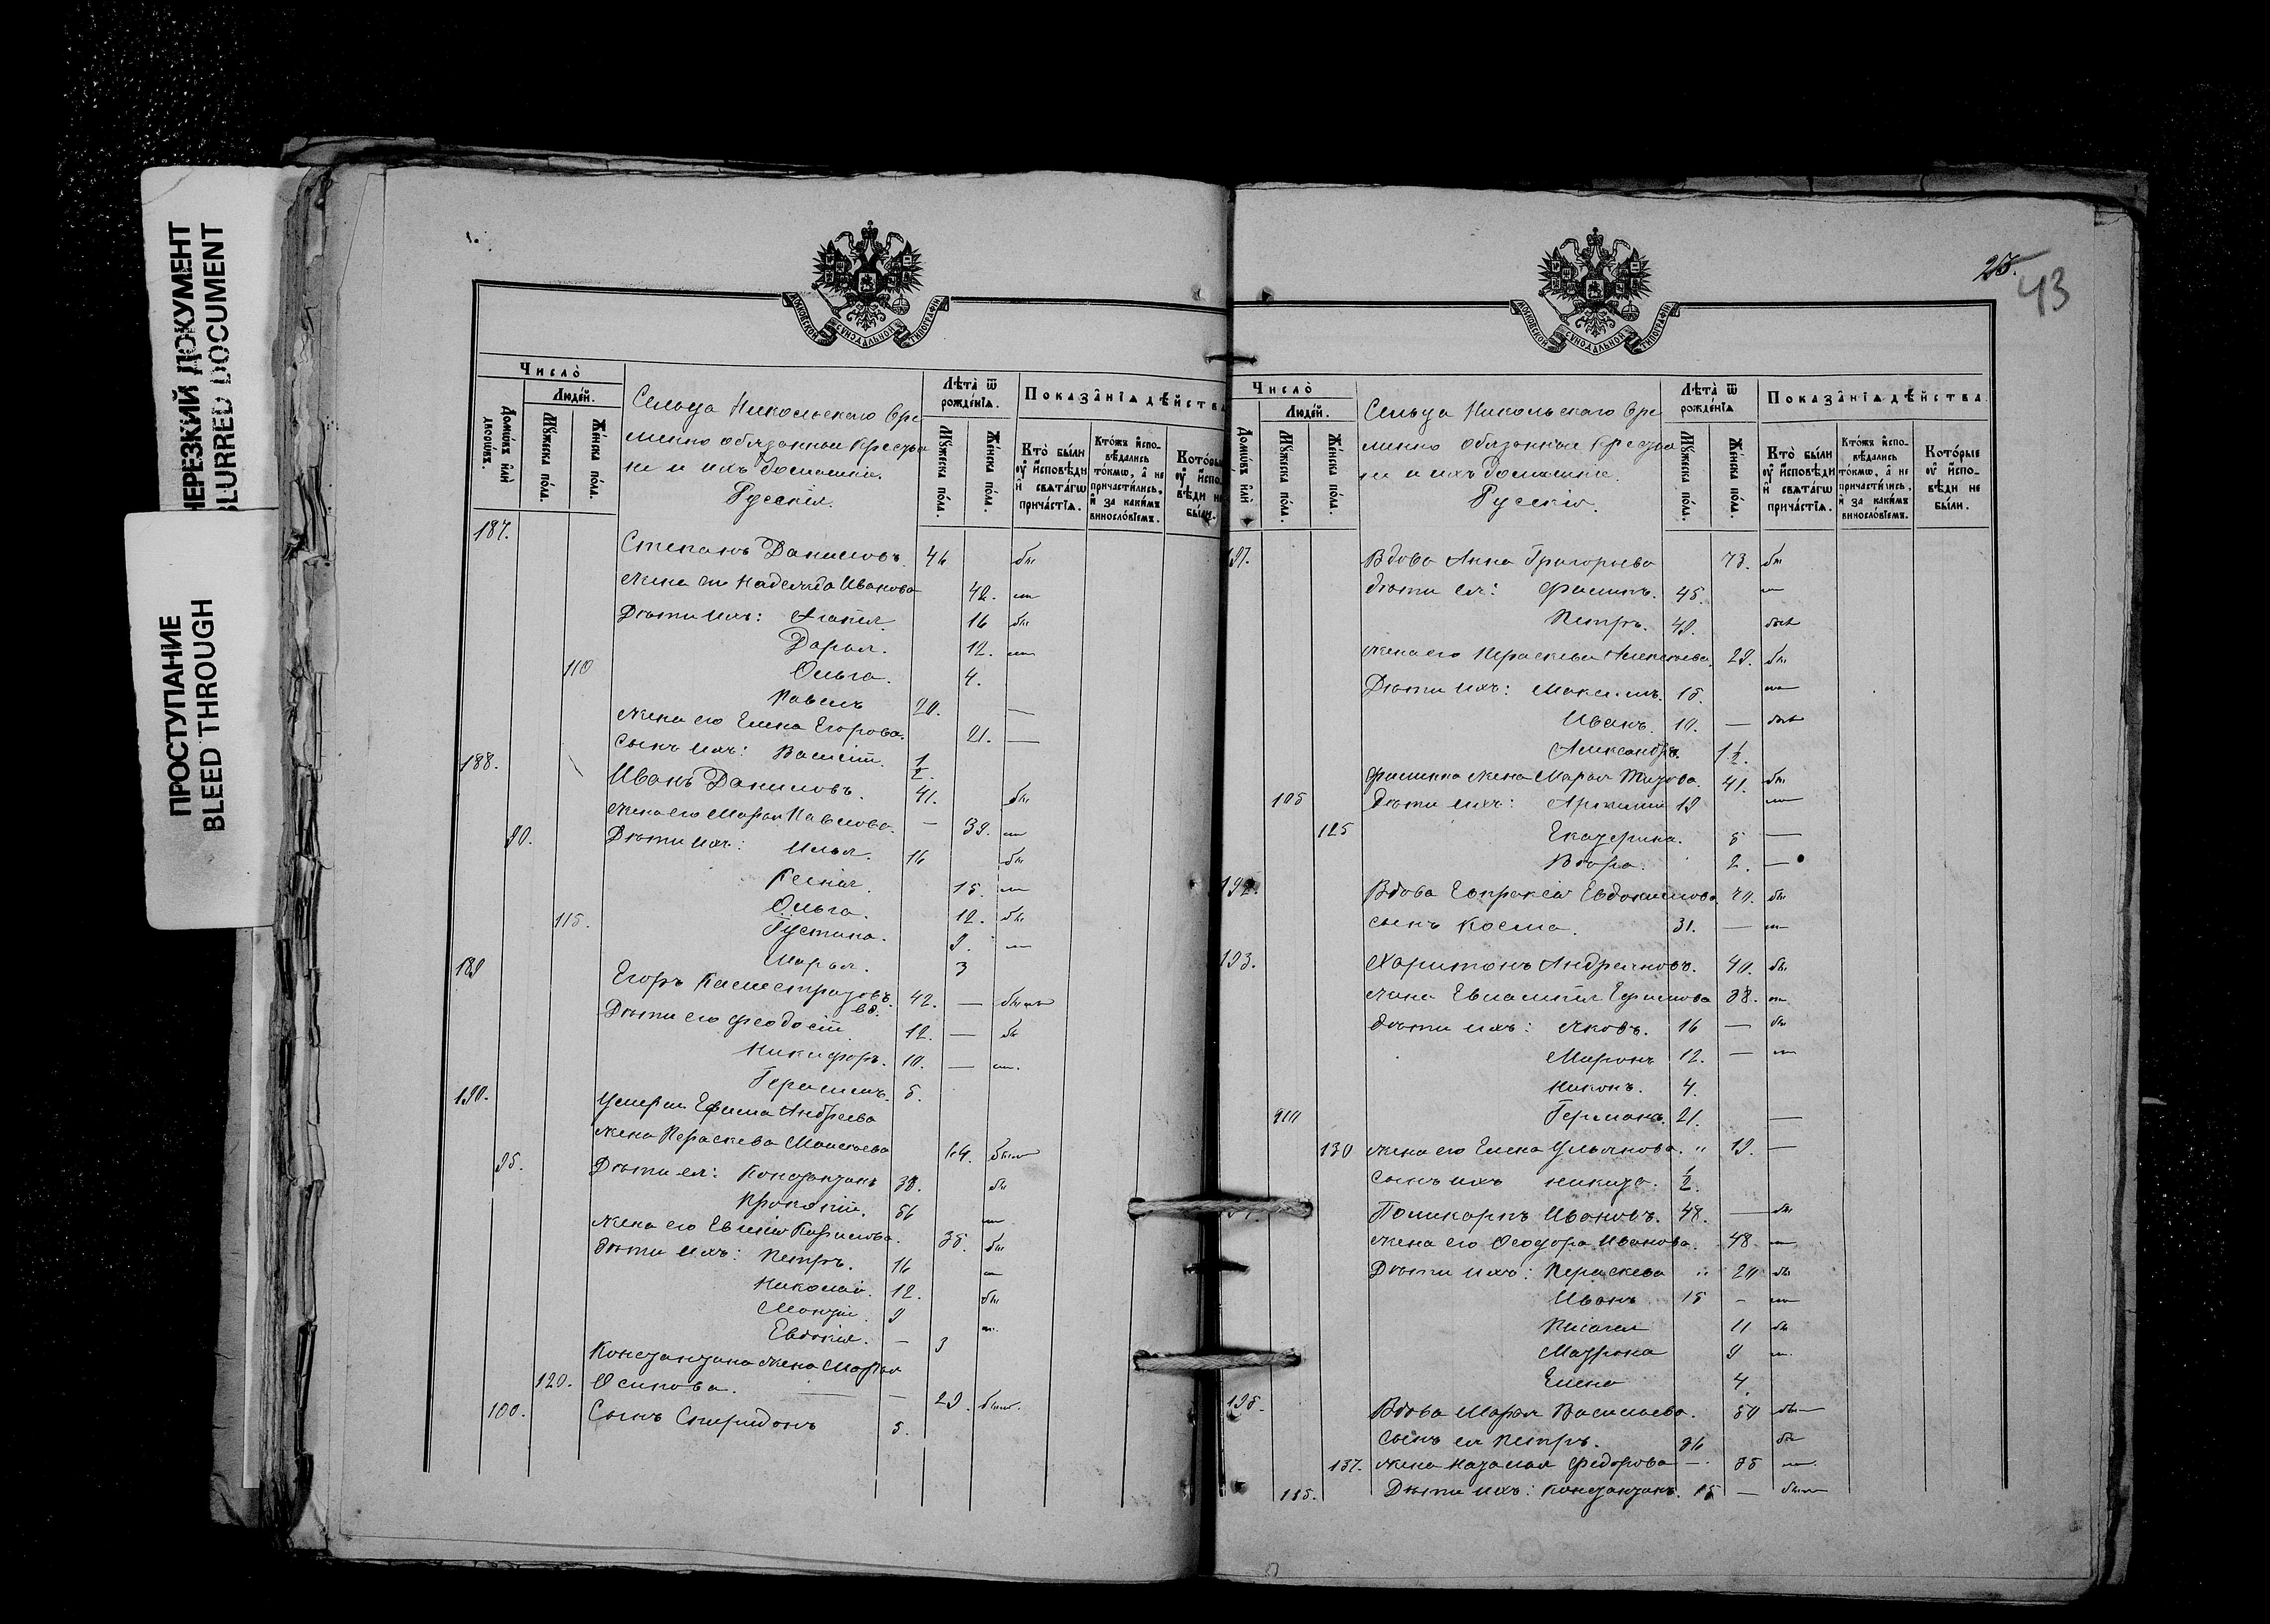 НЕРЕЗКИЙ ДОКУМЕНТ
BLURRED DOCUMENT
ПРОСТУПАНИЕ
BLEED THROUGH
МОСКОВСКОЙ СѴНОДАЛЬНОЙ ТИПОГРАФІИ
Число̀
Люде́й.
Домѡ́въ и҆лѝ дворѡ́въ.
Мꙋ́жеска по́ла.
Же́нска по́ла.
Сельца Никольскаго Вре
менно обязанныи Крестья
не и ихъ домашніе.
Русскія.
Лѣта̀ ѿ рожде́нїѧ.
Мꙋ́жеска по́ла.
Же́нска по́ла.
Показа̑нїѧ дѣ́йства
Кто̀ бы́ли ᲂу҆ и҆сповѣ́ди и҆ свѧта́гѡ прича́стїѧ.
Кто́жъ и҆сповѣ́дались то́кмѡ, а҆ не причасти́лись, и҆ за каки́мъ винословїемъ.
Кото́ры ᲂу҆ и҆спо вѣ́ди н бы́ли.
187. Степанъ Даниловъ. 46 бы
Жена его Надежда Иванова 42. ли
Дѣти ихъ: 16 бы
Дарья. 12. ли
110 Ольга. 4.
Павелъ 20. —
Жена его Елена Егорова. 21. —
Сынъ ихъ: Василій. 1/2.
188. Иванъ Даниловъ. 41. бы
Жена его Марья Павлова. — 39. ли
90. Дѣти ихъ: Илья. 16 бы
Ксенія. 15. ли
115. Ольга. 12. бы
Устина. 9. ли
Марья. 3
189 Егоръ Калистратовъ вд. 42. — были
Дѣти его Феодосій 12. — бы
Никифоръ. 10. — ли.
Герасимъ. 5.
190. Умерш. Ефима Андреева
жена Параскева Моисеева 64. были
95. Дѣти ея: Константинъ 30. бы
Прокопій. 36 ли
Жена его Евгенія Карпова. 35. бы
дѣти ихъ: Петръ. 16 ли
Николай. 12. бы
9 ли.
Евдокія. — 3
Константина жена Марья
120. Осипова. — 29. были.
100. Сынъ Спиридонъ 5.
25.
43
МОСКОВСКОЙ СѴНОДАЛЬНОЙ ТИПОГРАФІИ
Число̀
Люде́й.
Домѡ́въ и҆лѝ
Мꙋ́жеска по́ла.
Же́нска по́ла.
Сельца Никольскаго Вре
менно обязанныи Крестья
не и ихъ домашніе.
Русскія.
Лѣта̀ ѿ рожде́нїѧ
Мꙋ́жеска по́ла.
Же́нска по́ла.
Показа̑нїѧ дѣ́йства.
Кто̀ бы́ли ᲂу҆ и҆сповѣ́ди и҆ свѧта́гѡ прича́стїѧ.
Кто́жъ и҆сповѣ́дались то́кмѡ, а҆ не причасти́лись, и҆ за каки́мъ винословїемъ.
Кото́рые ᲂу҆ и҆сповѣ́ди не бы́ли.
191. Вдова Анна Григорьева 73. бы
дѣти ея: Филипъ. 45. ли
Петръ. 49. был
жена его Параскева Алексеева. 29. бы
Дѣти ихъ: Максимъ. 15. ли
Иванъ. 10. — был
Александра. 1 1/2.
Филиппа жена Марья Титова. 41. бы
105 Дѣти ихъ: 19 ли
125 Екатерина. 5 —
2. —
192. Вдова Евпраксія Евдокимова 70. бы
сынъ Косма. 31. — ли
193. Харитонъ Андреяновъ. 40. бы
жена Евлампія Ефимова 38. ли
дѣти ихъ: Яковъ. 16 — бы
Миронъ 12. — ли
Никонъ. 4.
Германъ. 21. —
130 жена его Елена Ульянова. " 19. —
Сынъ ихъ Никита. 1/2.
194. Поликарпъ Ивановъ. 48. — бы
жена его Феодора Иванова. 48 ли
Дѣти ихъ: Параскева " 20 бы
Иванъ 15 - ли
Пелагея 11 бы
Матрона 9 ли.
Елена 4.
195. Вдова Марья Васильева. 50 бы
Сынъ ея Петръ. 36 бы
137. жена Наталья Федорова —. 35 ли.
115. Дѣти ихъ: Константинъ. 15 — были